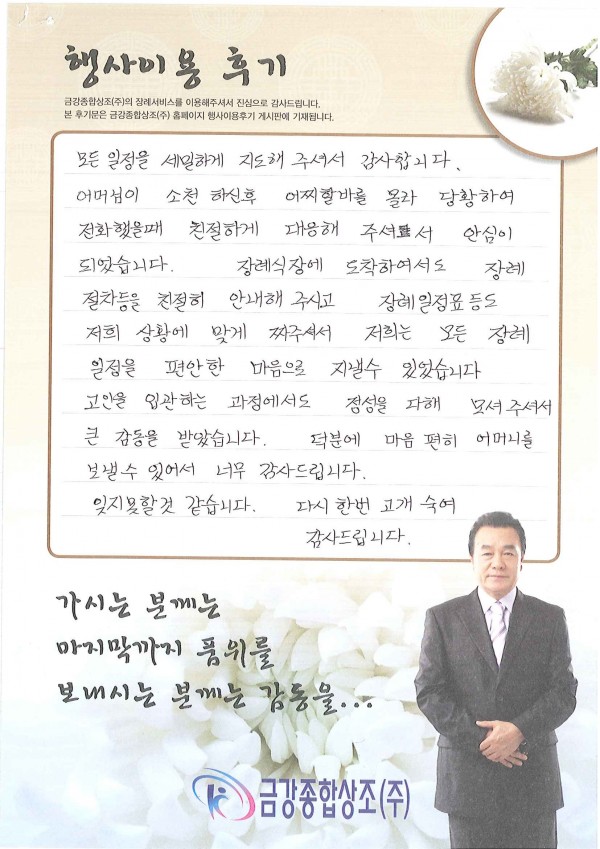 행사이용 후기
금강종합상조(주)의 장례서비스를 이용해주셔서 진심으로 감사드립니다.
본 후기문은 금강종합상조(주) 홈페이지 행사이용후기 게시판에 기재됩니다.
모든 일정을 세밀하게 지도해 주셔서 감사합니다.
어머님이 소천 하신후 어찌할바를 몰라 당황하여
전화했을때 친절하게 대응해 주셔서 안심이
되었습니다. 장례식장에 도착하여서도 장례
절차등을 친절히 안내해 주시고 장례일정표등도
저희 상황에 맞게 짜주셔서 저희는 모든 장례
일정을 편안한 마음으로 지낼수 있었습니다
고인을 입관하는 과정에서도 정성을 다해 모셔주셔서
큰 감동을 받았습니다. 덕분에 마음 편히 어머니를
보낼수 있어서 너무 감사드립니다.
잊지못할것 같습니다. 다시 한번 고개 숙여
감사드립니다.
가시는 분께는
마지막까지 품위를
보내시는 분께는 감동을...
금강종합상조(주)